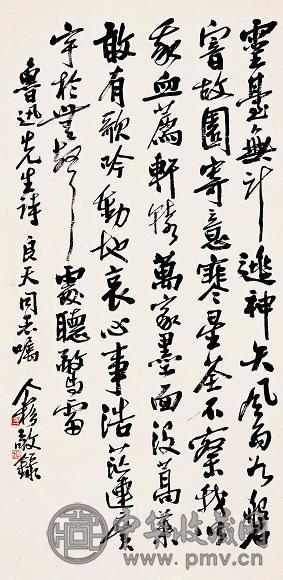 靈臺無計逃神矢風雨如磐
闇故園寄意寒星荃不察我以
我血薦軒轅萬家墨面沒蒿萊
敢有歌吟動地哀心事浩茫連廣
宇於無聲處聽驚雷
魯迅先生詩 良天同志囑 个簃敬錄
www.pmv.cn